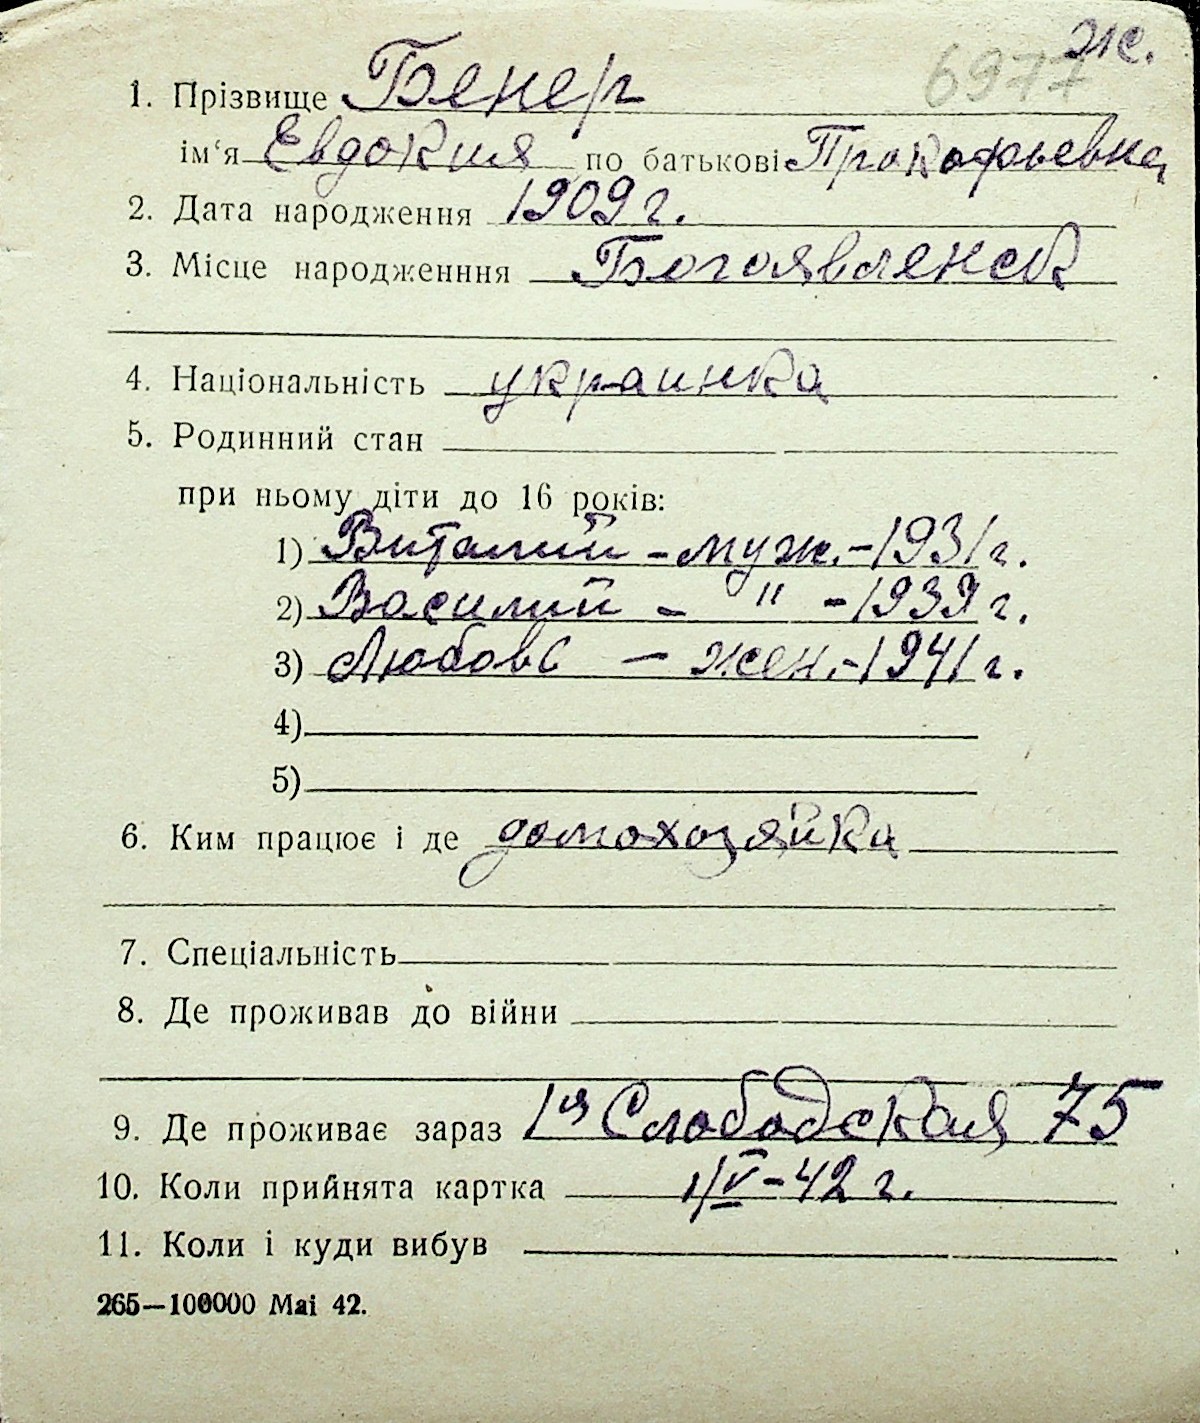 Ж.
6977
1. Прізвище Бекер
ім‘я Евдокия по батькові Прокофьевна
2. Дата народження 1909 г.
3. Місце народженння Богоявленск
4. Національність украинка
5. Родинний стан
при ньому діти до 16 років:
1) Виталий - муж. - 1931 г.
2) Василий - " - 1939 г.
3) Любовь - жен. - 1941 г.
4)
5)
6. Ким працює і де домохозяйка
7. Спеціальність
8. Де проживав до війни
9. Де проживає зараз 1ая Слободская 75
10. Коли прийнята картка 1/V-42 г.
11. Коли і куди вибув
265—100000 Mai 42.